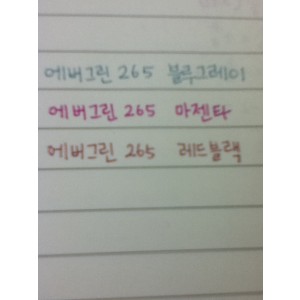 에버그린 265 블루그레이
에버그린 265 마젠타
에버그린 265 레드블랙